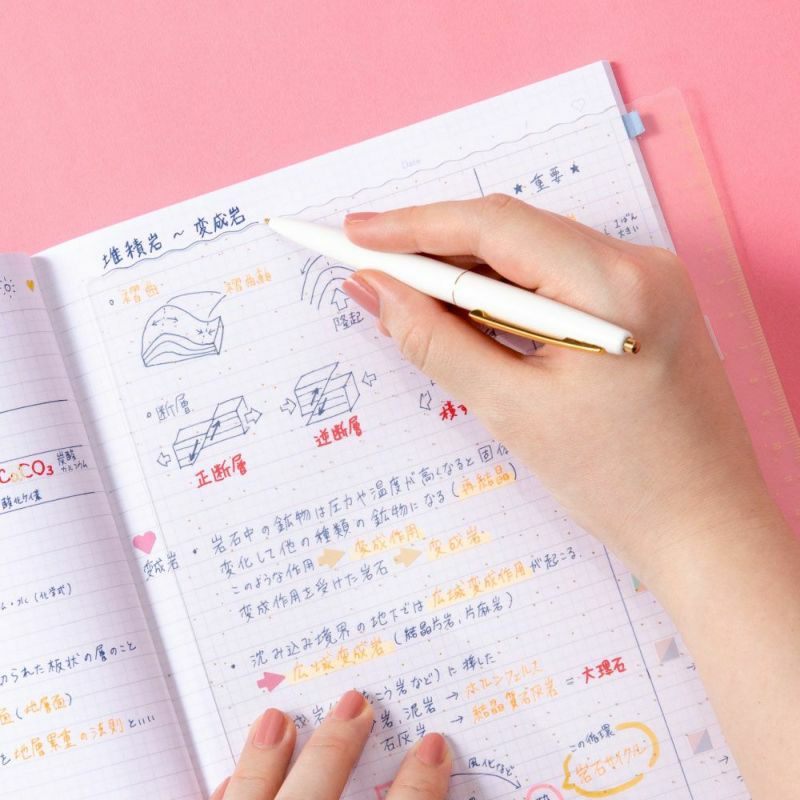 CaCO3 炭酸カルシウム
(化学式)
切られた板状の層のこと
面(地層面)
と地層累重の法則といい
Date
堆積岩 ~ 変成岩
。褶曲 褶曲軸
隆起
。断層
正断層 逆断層 横ず
変成岩
・岩石中の鉱物は圧力や温度が高くなると固体
変化して他の種類の鉱物になる(再結晶)
このような作用 → 変成作用
変成作用を受けた岩石 → 変成岩
・沈み込み境界の地下では広域変成作用が起こる.
→ 広域変成岩 (結晶片岩, 片麻岩)
岩など)に接した
岩, 泥岩 → ホルンフェルス
石灰岩 → 結晶質石灰岩 = 大理石
風化など
この循環
岩石サイクル
★ 重要 ★
1ばん
大きい